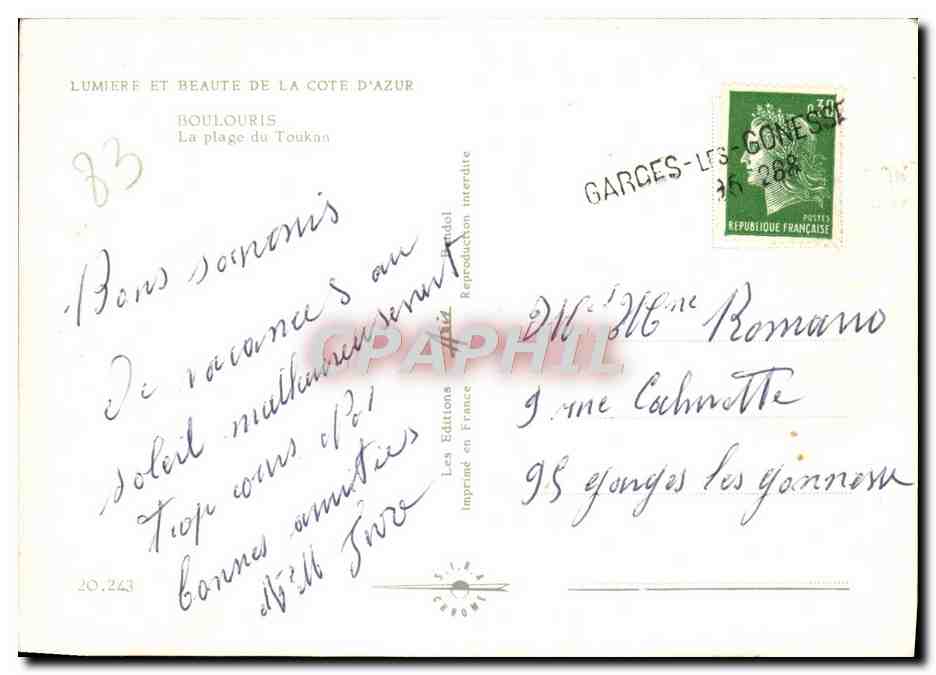 LUMIERE ET BEAUTE DE LA COTE D'AZUR
BOULOURIS
La plage du Toukan
83
Bons
De vacances au
soleil malheureusement
trop
bonnes amitiés
0,30
POSTES
REPUBLIQUE FRANÇAISE
GARGES-LES-GONESSE
288
Les Editions Bandol
Imprimé en France Reproduction interdite
CPAPHIL
Romano
9 rue Calmette
95 garges les gonnesse
20.243
CHROME